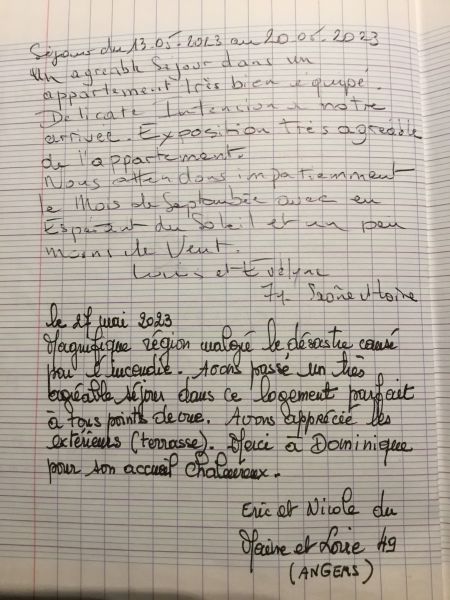 Séjour du 13.05.2023 au 20.05.2023
Un agreable Sejour dans un
appartement très bien équipé.
Délicate Intencion a notre
arrivee. Exposition très agréable
de l'appartement.
Nous attendons impatiemment
le Mois de Septembre avec en
Espérant du Soleil et un peu
moins de Vent.
Louis et Evelyne
71. Saône et Loire
le 27 mai 2023
Magnifique région malgré le désastre causé
par l'incendie. Avons passé un très
agréable séjour dans ce logement parfait
à tous points de vue. Avons apprécié les
extérieurs (terrasse). Merci à Dominique
pour son accueil chaleureux.
Eric et Nicole du
Maine et Loire 49
(ANGERS)